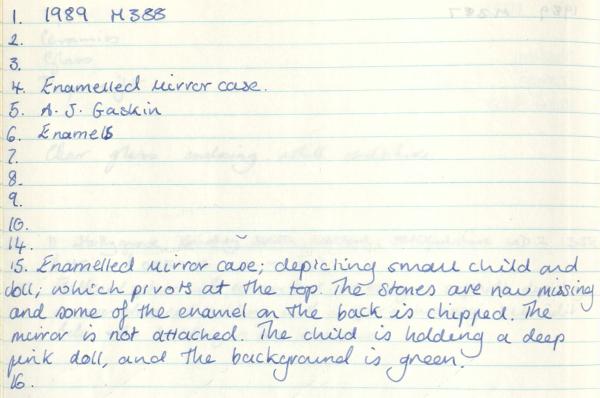 1. 1989 M388
2.
3.
4. Enamelled mirror case.
5. A. J. Gaskin
6. Enamels
7.
8.
9.
10.
14.
15. Enamelled mirror case; depicting small child and
doll; which pivots at the top. The stones are now missing
and some of the enamel on the back is chipped. The
mirror is not attached. The child is holding a deep
pink doll, and the background is green.
16.